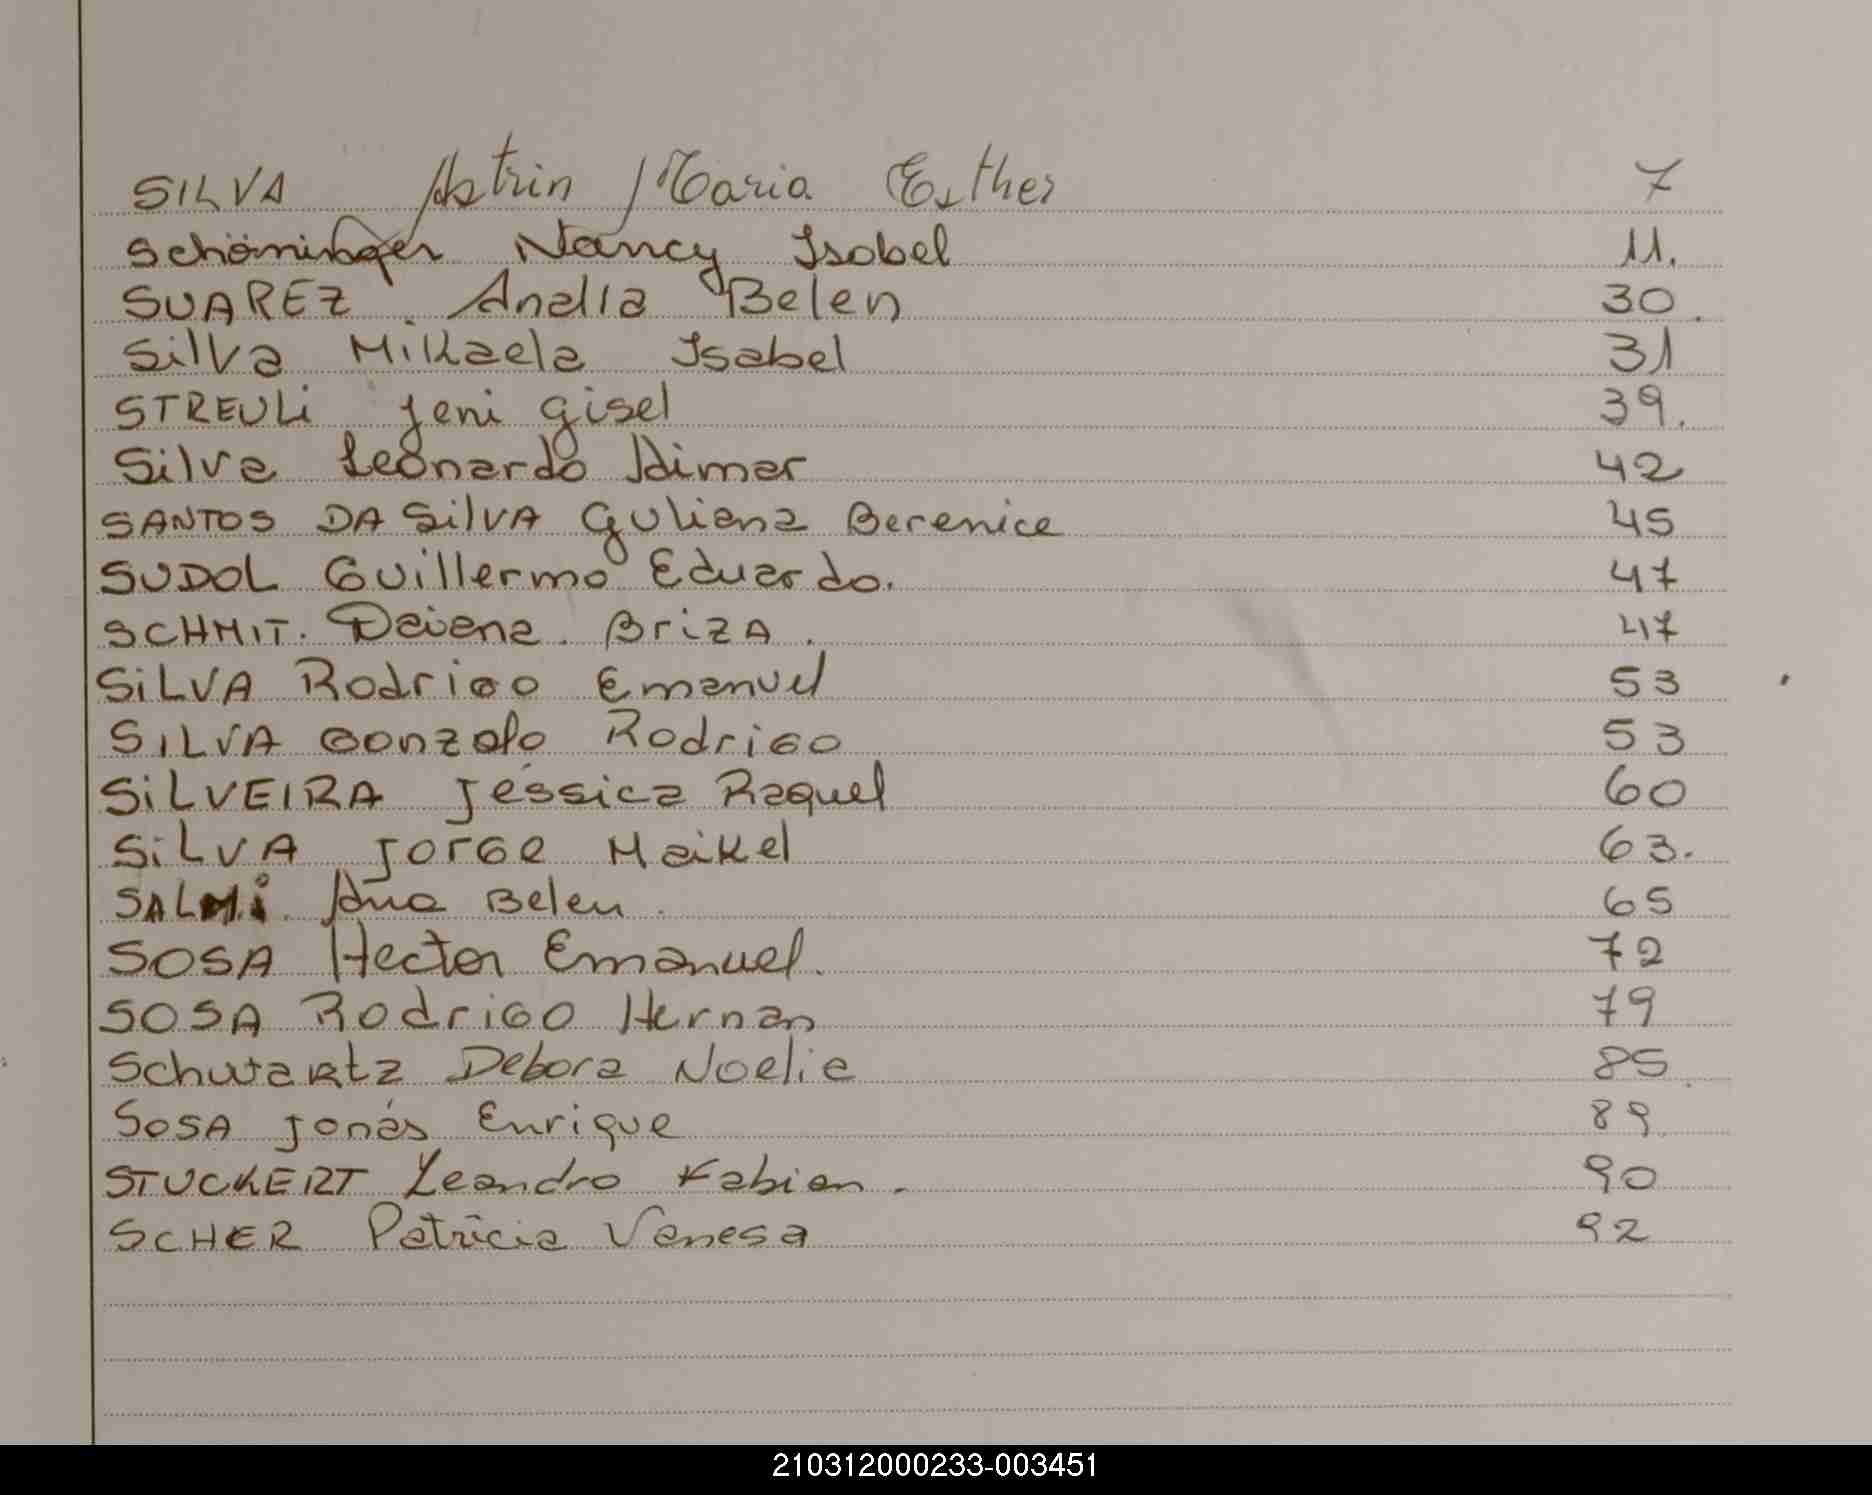 SILVA Astrin Maria Esther 7
Schöninger Nancy Isabel 11.
SUAREZ. Analia Belen 30.
Silva Mikaela Isabel 31
STREULi Jeni Gisel 39.
Silva Leonardo Idimar 42
SANTOS DA SilVA Guliana Berenice 45
SUDOL Guillermo Eduardo. 47
SCHMIT. Daiana. BriZA. 47
SiLVA Rodrigo Emanuel 53
SILVA Gonzalo Rodrigo 53
SiLVEIRA Jéssica Raquel 60
SiLVA Jorge Maikel 63.
SALMi. Ana Belen. 65
SOSA Hector Emanuel. 72
SOSA Rodrigo Hernan 79
Schwartz Debora Noelia 85.
SoSA Jonás Enrique 89.
STUCKERT Leandro Fabian. 90
SCHER Patricia Vanesa 92
210312000233-003451